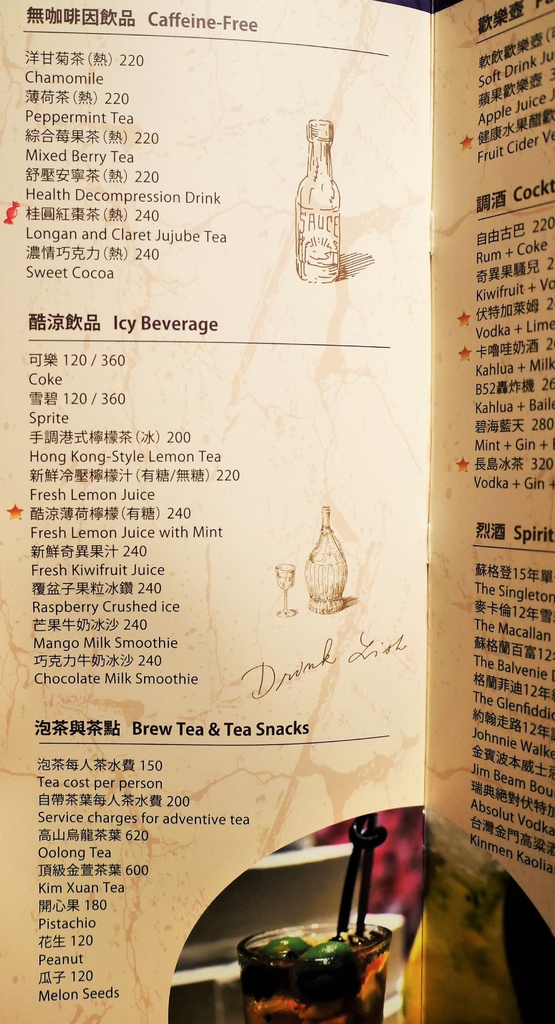 無咖啡因飲品 Caffeine-Free
洋甘菊茶(熱) 220
Chamomile
薄荷茶(熱) 220
Peppermint Tea
綜合莓果茶(熱) 220
Mixed Berry Tea
舒壓安寧茶(熱) 220
Health Decompression Drink
桂圓紅棗茶(熱) 240
Longan and Claret Jujube Tea
濃情巧克力(熱) 240
Sweet Cocoa
SAUCE
酷涼飲品 Icy Beverage
可樂 120 / 360
Coke
雪碧 120 / 360
Sprite
手調港式檸檬茶(冰) 200
Hong Kong-Style Lemon Tea
新鮮冷壓檸檬汁(有糖/無糖) 220
Fresh Lemon Juice
酷涼薄荷檸檬(有糖) 240
Fresh Lemon Juice with Mint
新鮮奇異果汁 240
Fresh Kiwifruit Juice
覆盆子果粒冰鑽 240
Raspberry Crushed ice
芒果牛奶冰沙 240
Mango Milk Smoothie
巧克力牛奶冰沙 240
Chocolate Milk Smoothie
Drink List
泡茶與茶點 Brew Tea & Tea Snacks
泡茶每人茶水費 150
Tea cost per person
自帶茶葉每人茶水費 200
Service charges for adventive tea
高山烏龍茶葉 620
Oolong Tea
頂級金萱茶葉 600
Kim Xuan Tea
開心果 180
Pistachio
花生 120
Peanut
瓜子 120
Melon Seeds
歡樂壺
軟飲歡樂壺
Soft Drink
蘋果歡樂壺
Apple Juice
健康水果醋
Fruit Cider
調酒
自由古巴 220
Rum + Coke
奇異果騷兒
Kiwifruit +
伏特加萊姆
Vodka + Lime
卡嚕哇奶酒
Kahlua + Milk
B52轟炸機
Kahlua +
碧海藍天 280
Mint + Gin +
長島冰茶 320
Vodka + Gin +
烈酒 Spirit
蘇格登15年
The Singleton
麥卡倫12年
The Macallan
蘇格蘭百富
The Balvenie
格蘭菲迪12年
The Glenfiddic
約翰走路12年
Johnnie
金賓波本威士
Jim Beam
瑞典絕對伏特
Absolut Vodka
台灣金門高粱
Kinmen